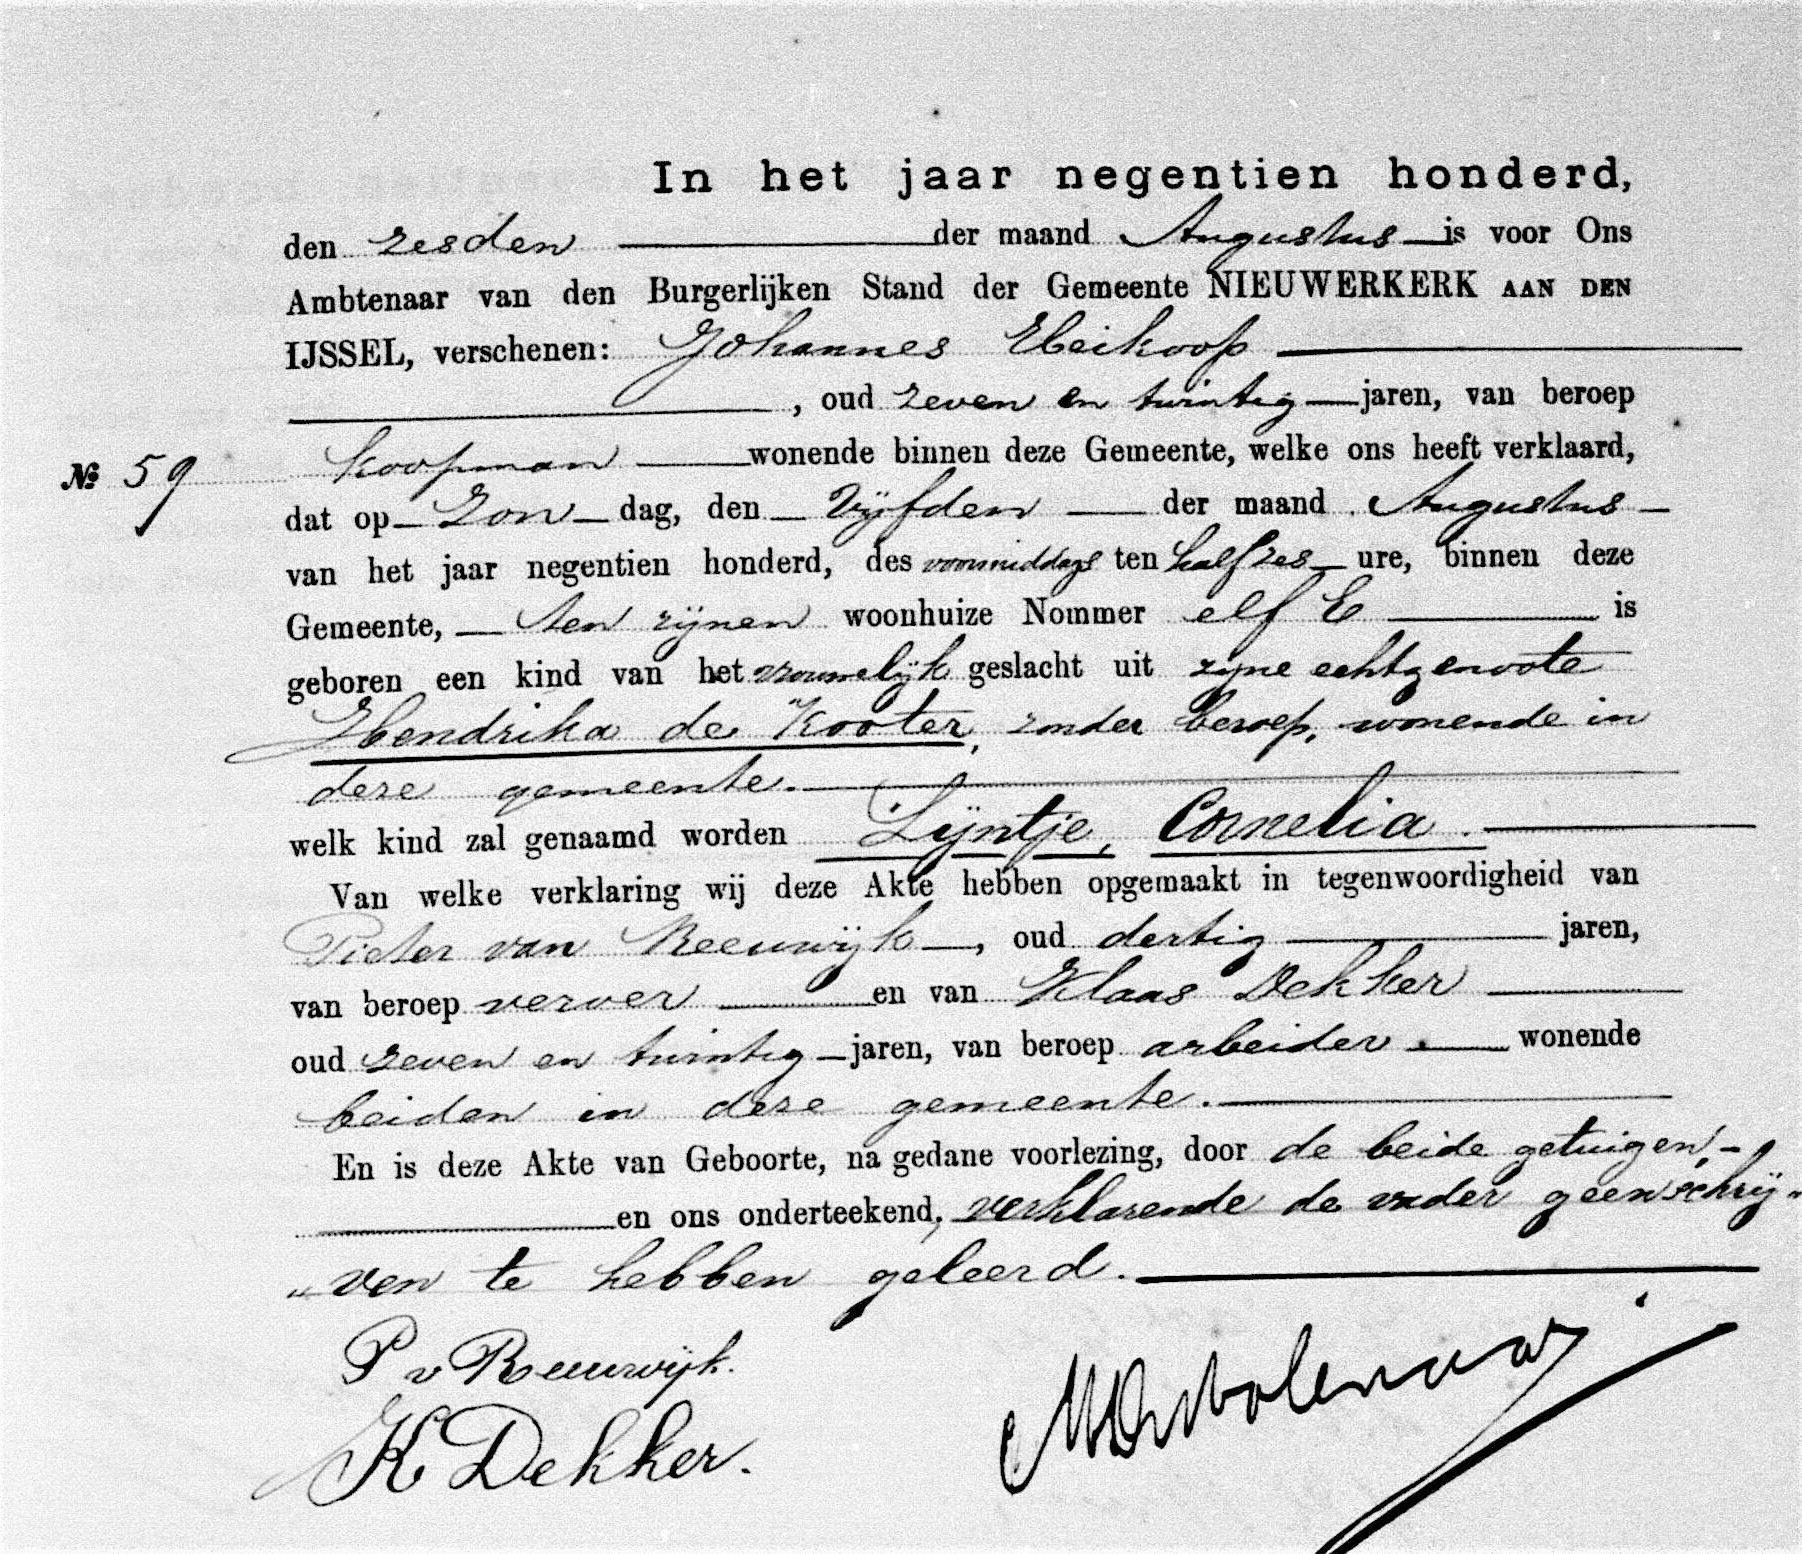 In het jaar negentien honderd,
den zesden der maand Augustus is voor Ons
Ambtenaar van den Burgerlijken Stand der Gemeente NIEUWERKERK AAN DEN
IJSSEL, verschenen: Johannes Heikoop
, oud zeven en twintig jaren, van beroep
№ 59 koopman wonende binnen deze Gemeente, welke ons heeft verklaard,
dat op Zon dag, den Vijfden der maand Augustus
van het jaar negentien honderd, des voormiddags ten half zes ure, binnen deze
Gemeente, ten zijnen woonhuize Nommer elf E is
geboren een kind van het vrouwelijk geslacht uit zijne echtgenoote
Hendrika de Kooter, zonder beroep, wonende in
deze gemeente.
welk kind zal genaamd worden Lijntje, Cornelia.
Van welke verklaring wij deze Akte hebben opgemaakt in tegenwoordigheid van
Pieter van Reeuwijk, oud dertig jaren,
van beroep verver en van Klaas Dekker
oud zeven en twintig jaren, van beroep arbeider wonende
beiden in deze gemeente.
En is deze Akte van Geboorte, na gedane voorlezing, door de beide getuigen,
en ons onderteekend, verklarende de vader geen schrij„
„ven te hebben geleerd.
P v Reeuwijk.
K Dekker.